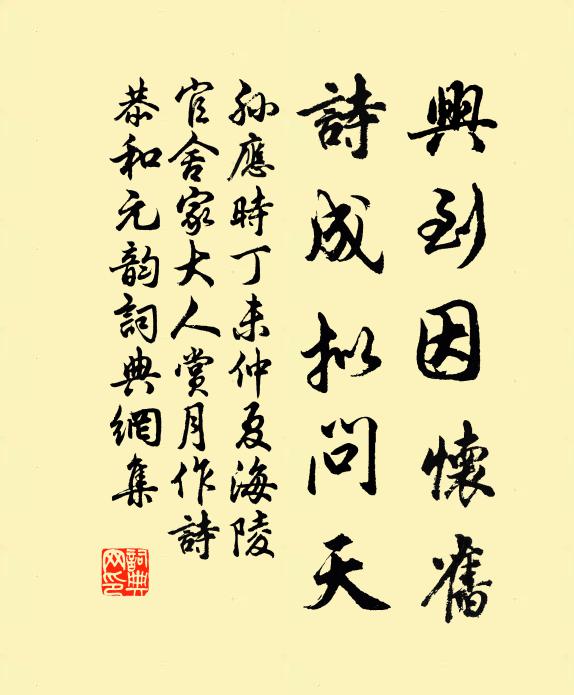 興到因懷舊
詩成擬問天
孙應時丁未仲夏海陵
官舍家大人賞月作詩
恭和元韵詞典網集
詞典网印